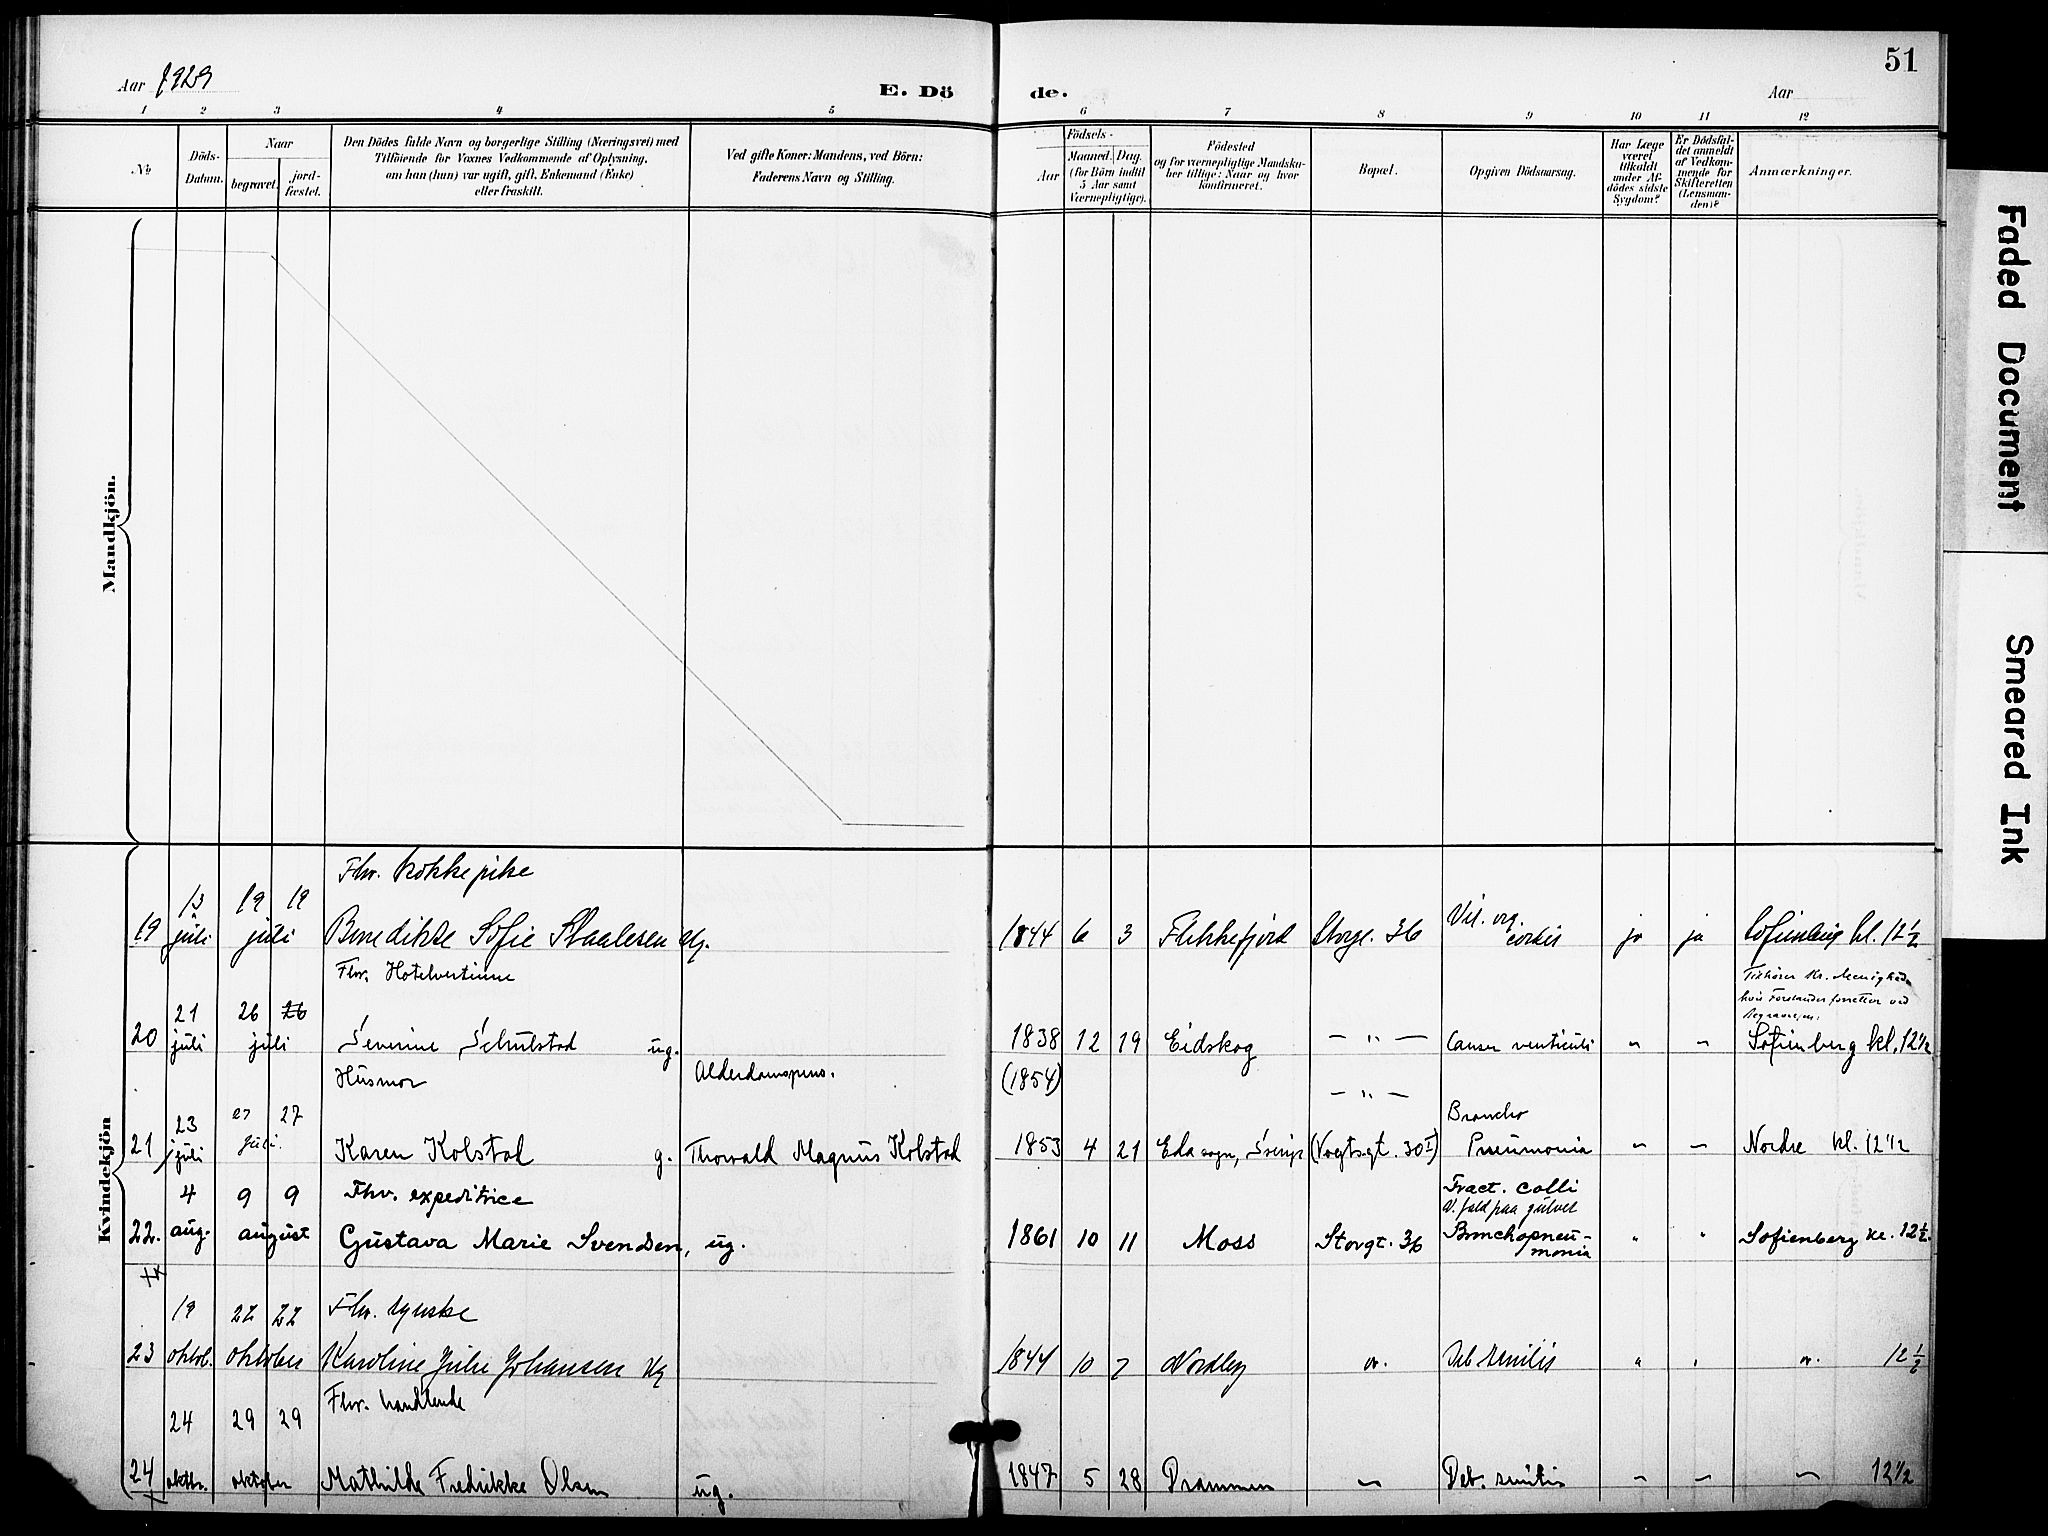 51
Aar 1929
E. Dö de.
Aar
1 2 3 4 5 6 7 8 9 10 11 12
No
Döds-Datum.
Naar
begravet.
jord-fæstet.
Den Dödes fulde Navn og borgerlige Stilling (Næringsvei) med
Tilföiende for Voxnes Vedkommende af Oplysning,
om han (hun) var ugift, gift, Enkemand (Enke)
eller fraskilt.
Ved gifte Koner: Mandens, ved Börn:
Faderens Navn og Stilling.
Födsels-
Aar
Maaned. Dag.
(for Börn indtil
5 Aar samt
Værnepligtige).
Födested
og for værnepligtige Mandska-
ber tillige: Naar og hvor
konfirmeret.
Bopæl.
Opgiven Dödsaarsag.
Har Læge
været
tilkaldt
under Af-
dödes sidste
Sygdom?
Er Dödsfal-
det anmeldt
af Vedkom-
mende for
Skifteretten
(Lensman-
den)?
Anmærkninger.
Mandkjön.
Kvindekjön
Fhv. kokkepike
19 13 juli 19 19 juli Benedikte Sofie Staalesen ug. 1844 6 3 Flekkefjord Storgt. 36 Vit. org. cordis ja ja Sofienberg kl. 12 1/2
Fhv. Hotelvertinne
Tilhører Kr. Menighed
hvis Forstander forretter ved
Begravelsen.
20 21 juli 26 26 juli Severine Schulstad ug. 1838 12 19 Eidskog — " — Cancer ventriculi " " Sofienberg kl. 12 1/2
Husmor Alderdomspens. (1854) — " —
21 23 juli 27 27 juli. Karen Kolstad g. Thorvald Magnus Kolstad 1853 4 21 Eda sogn, Sverige (Vogtsgt. 30 I) Broncho Pneumonia " " Nordre kl. 12 1/2
Fhv. expeditrice
22. 4 aug. 9 9 august Gustava Marie Svendsen, ug. 1861 10 11 Moss Storgt. 36 Fract. colli V. fald paa gulvet Bronchopneu-monia " " Sofienberg kl. 12 1/2.
Fhv. syerske
23 19 oktob. 22 22 oktober Karoline Julie Johansen ug 1844 10 7 Nordby " Deb senilis " " " 12 1/2
Fhv. handlende
24 24 oktbr. 29 29 oktober Mathilde Fredrikke Olsen ug. 1847 5 28 Drammen " Deb. senilis " " " 12 1/2
Faded Document
Smeared Ink